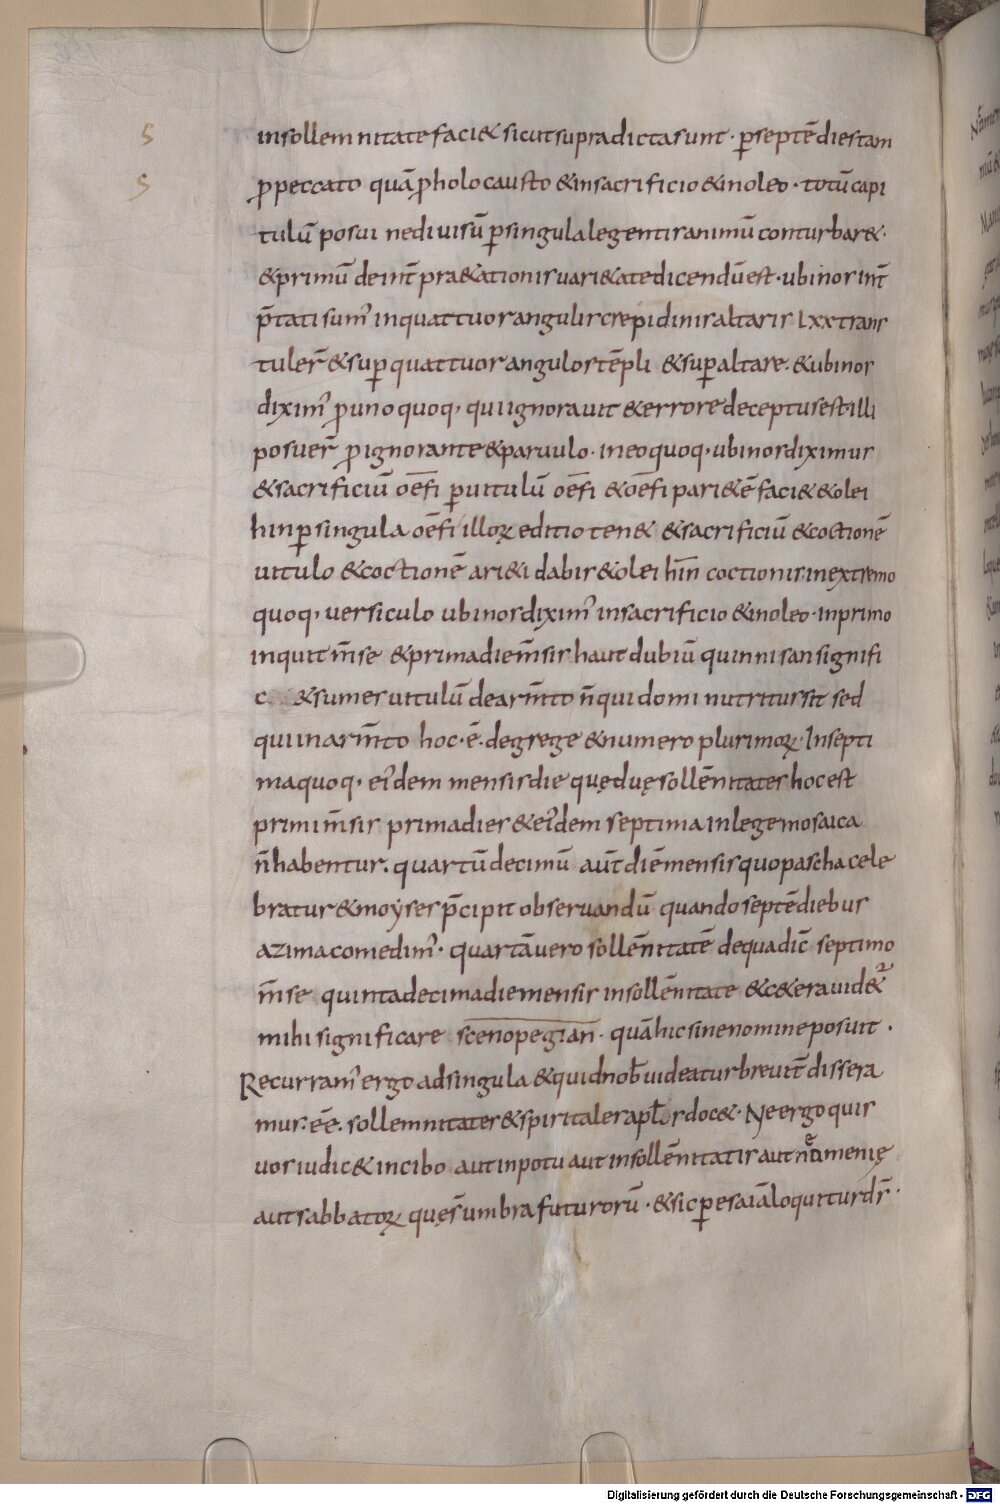 5
5
insollemnitate faci& sicut supra dicta sunt · p̱ septē dies tam
p̱ peccato quā p̱ holocausto & in sacrificio & in oleo · totū capi
tulū posui ne divisū p̱ singula legentis animū conturbar& ·
& primū de int̄pra&ationis vari&ate dicendū est · ubi nos int̄
p̄tati sum᾽ in quattuor angulis crepidinis altaris Lxx trans
tuler̄ & sup̱ quattuor angulos tēpli & sup̱ altare · & ubi nos
dixim᾽ p̱ uno quoq, qui ignoravit & errore deceptus est illi
posuer̄ p̱ ignorante & parvulo · in eo quoq, ubi nos diximus
& sacrificiū oēfi p̱ vitulū oēfi & oēfi pari&ē faci& & olei
hin p̱ singula oēfi illoꝝ editio ten& & sacrificiū & coctionē
vitulo & coctionē ari&i dabis & olei hīn coctionis in extremo
quoq, versiculo ubi nos dixim᾽ in sacrificio & in oleo · in primo
inquit m̄se & prima die m̄sis haut dubiū quin nisan signifi
c & sumes vitulū de arm̄to n̄ qui domi nutritus sit sed
qui in arm̄to hoc · ē · de grege & numero plurimoꝝ Insepti
ma quoq, ei᾽dem mensis die quę duę sollēnitates hoc est
primi m̄sis prima dies & ei᾽dem septima in lege mosaica
n̄ habentur · quartū decimū aūt diē mensis quo pascha cele
bratur & moẏses p̄cipit observandū quando septē diebus
azima comedim᾽ · quartā vero sollēnitatē de qua dic̄ septimo
m̄se quinta decima die mensis in sollēnitate & c&era vid&ᷣ
mihi significare scenopegian · quā hic sine nomine posuit ·
Recurram᾽ ergo ad singula & quid nob̄ videatur brevit̄ dissera
mus · ēē · sollemnitates & spiritales apl̄s doc& · Ne ergo quis
vos iudic& in cibo aut in potu aut in sollēnitatis aut neomenię
aut sabbatoꝝ quę s̄ umbra futurorū · & sic p̱ esaiā loquitur dn̄s ·
Digitalisierung gefördert durch die Deutsche Forschungsgemeinschaft - DFG